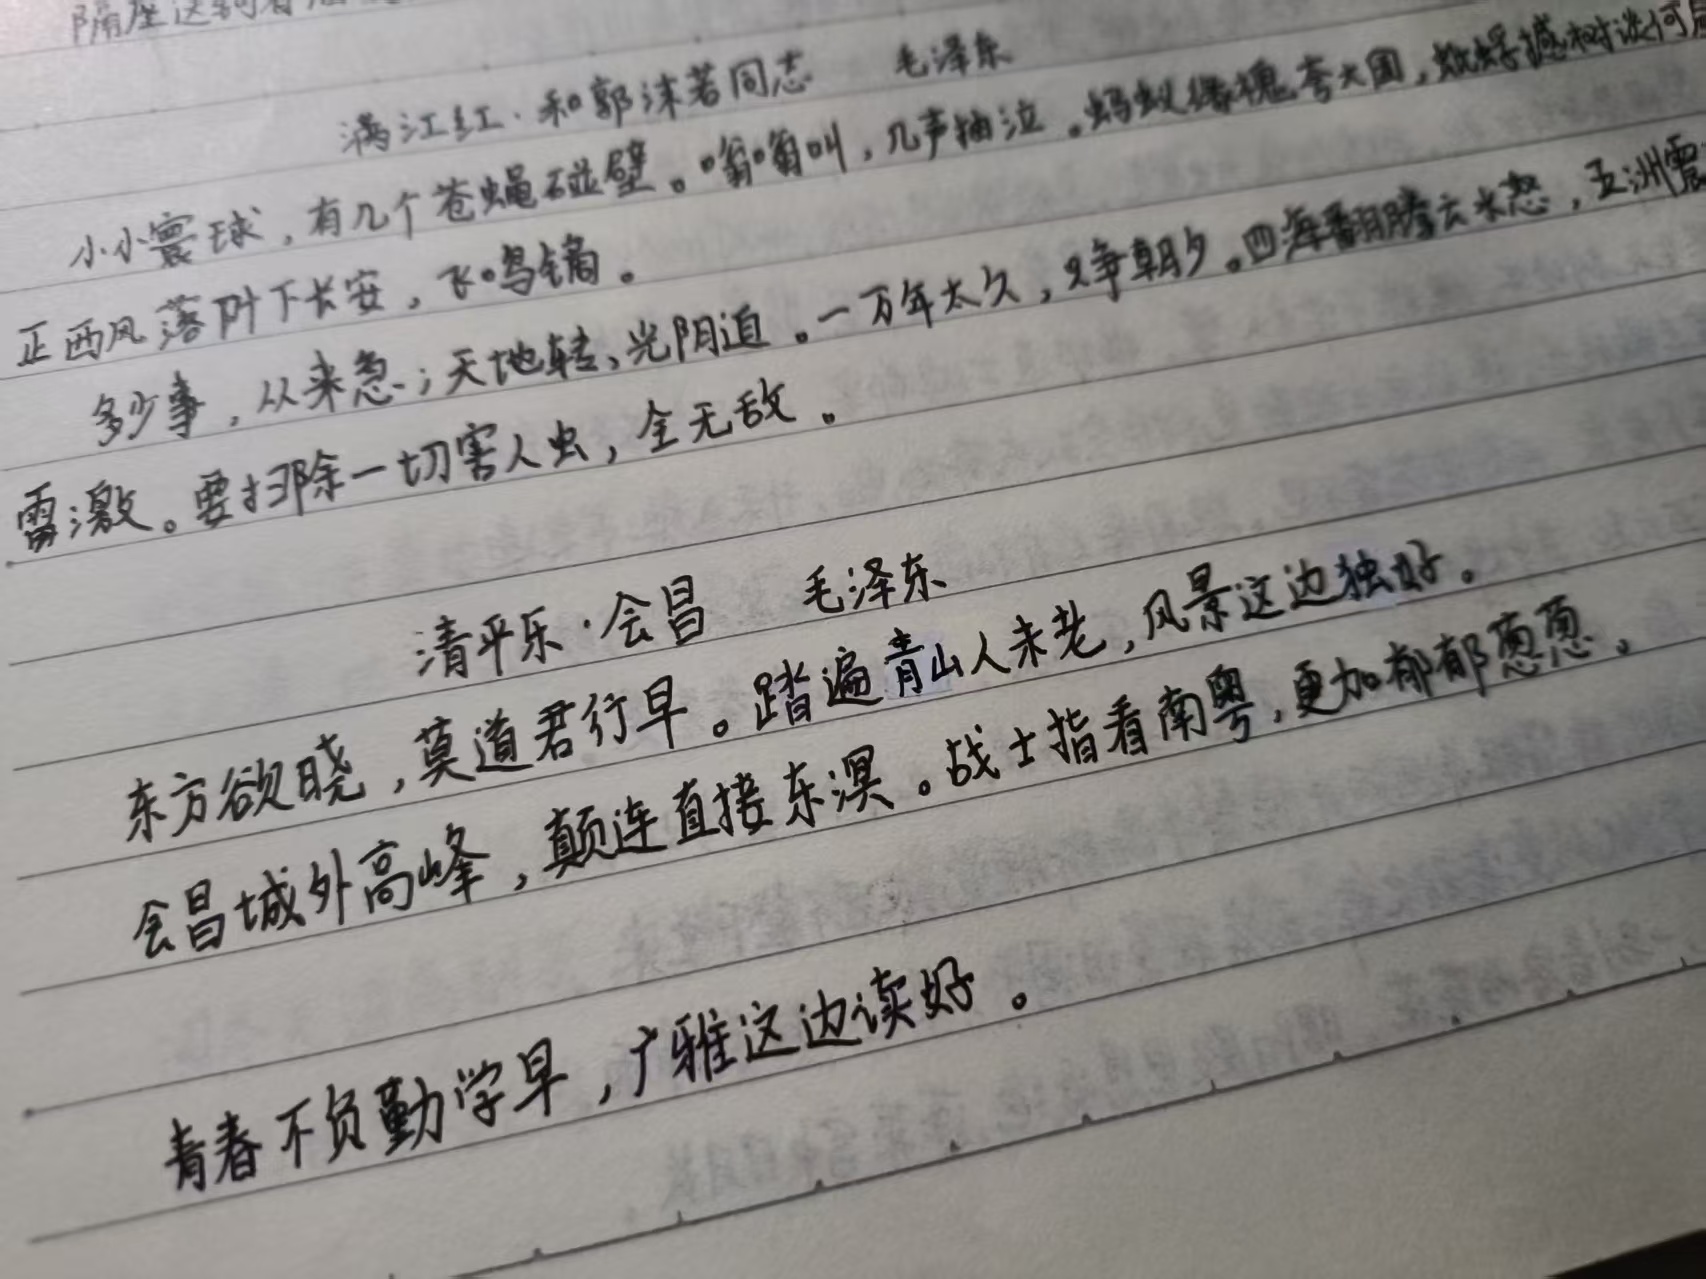 隔座这
满江红·和郭沫若同志 毛泽东
小小寰球，有几个苍蝇碰壁。嗡嗡叫，几声抽泣。蚂蚁缘槐夸大国，蚍蜉撼树谈何
正西风落叶下长安，飞鸣镝。
多少事，从来急；天地转，光阴迫。一万年太久，只争朝夕。四海翻腾云水怒，五洲震
雷激。要扫除一切害人虫，全无敌。
清平乐·会昌 毛泽东
东方欲晓，莫道君行早。踏遍青山人未老，风景这边独好。
会昌城外高峰，颠连直接东溟。战士指看南粤，更加郁郁葱葱。
青春不负勤学早，广雅这边读好。